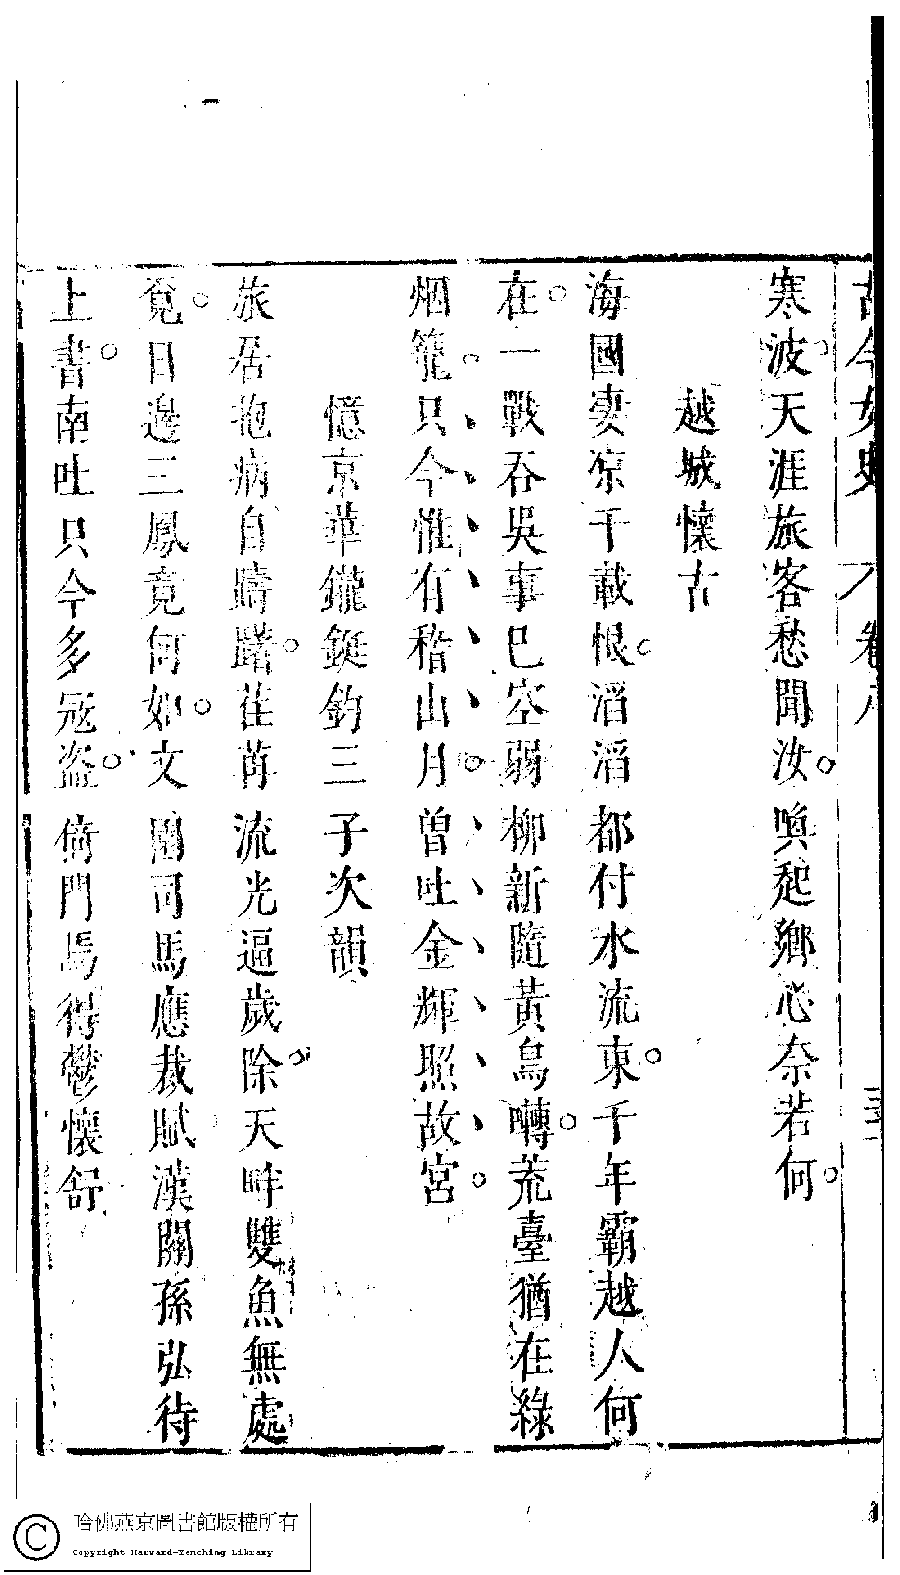 古今女史 卷八
寒波天涯旅客愁聞汝喚起鄉心奈若何
越城懷古
海國凄凉千載恨滔滔都付水流東千年霸越人何
在一戰吞吳事已空弱柳新隨黃鳥囀荒臺猶在綠
烟籠只今惟有稽山月曾吐金輝照故宮
憶京華鑨鋋鈞三子次韻
旅居抱病自躊躇荏苒流光逼歲除天畔雙魚無處
覓日邊三鳳竟何如文園司馬應裁賦漢關孫弘待
上書南吐只今多冦盗倚門焉得鬱懷舒
哈佛燕京圖書館版權所有
Copyright Harvard-Yenching Library